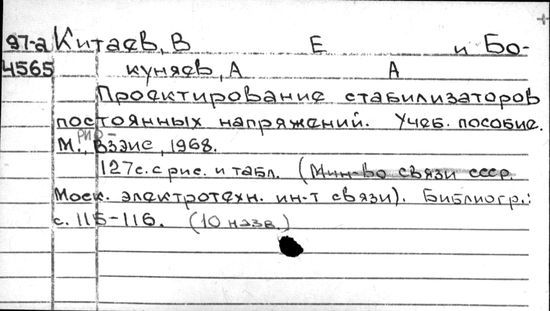 97-а Китаев, В Е и Бо-
4565 куняев, А А
Проектирование стабилизаторов
постоянных напряжений. Учеб. пособие.
М., ВЗЭИС, 1968.
127с. с рис. и табл. (Мин-во связи СССР.
Моск. электротехн. ин-т связи). Библиогр.:
с. 115-116. (10 назв.)